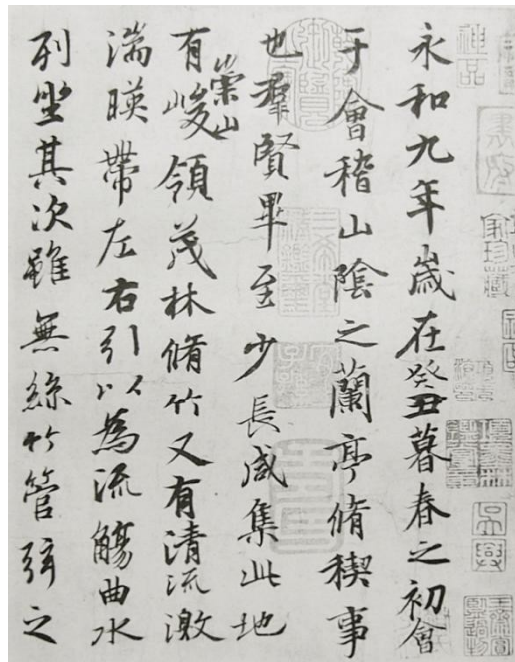 神品
永和九年歲在癸丑暮春之初會
于會稽山陰之蘭亭脩稧事
也羣賢畢至少長咸集此地
有崇山峻領茂林脩竹又有清流激
湍暎帶左右引以為流觴曲水
列坐其次雖無絲竹管弦之